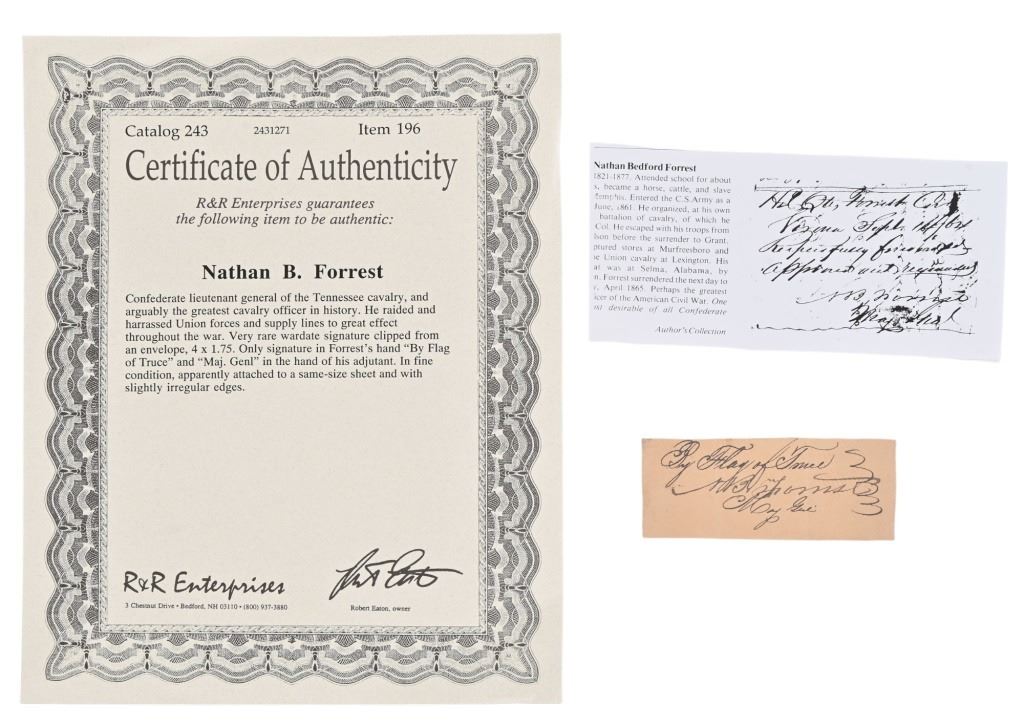 Catalog 243 2431271 Item 196
Certificate of Authenticity
R&R Enterprises guarantees
the following item to be authentic:
Nathan B. Forrest
Confederate lieutenant general of the Tennessee cavalry, and
arguably the greatest cavalry officer in history. He raided and
harrassed Union forces and supply lines to great effect
throughout the war. Very rare wardate signature clipped from
an envelope, 4 x 1.75. Only signature in Forrest's hand "By Flag
of Truce" and "Maj. Genl" in the hand of his adjutant. In fine
condition, apparently attached to a same-size sheet and with
slightly irregular edges.
R&R Enterprises
3 Chestnut Drive • Bedford, NH 03110 • (800) 937-3880
Robert Eaton, owner
Nathan Bedford Forrest
1821-1877. Attended school for about
s, became a horse, cattle, and slave
Memphis. Entered the C.S.Army as a
June, 1861. He organized, at his own
battalion of cavalry, of which he
Col. He escaped with his troops from
lson before the surrender to Grant.
ptured stores at Murfreesboro and
e Union cavalry at Lexington. His
at was at Selma, Alabama, by
n. Forrest surrendered the next day to
, April 1865. Perhaps the greatest
icer of the American Civil War. One
st desirable of all Confederate
Author's Collection
Hd Qtrs Forrest
Verona Sept
Respectfully forwarded
approved and
N B Forrest
Maj Genl
By Flag of Truce
N B Forrest
Maj Genl